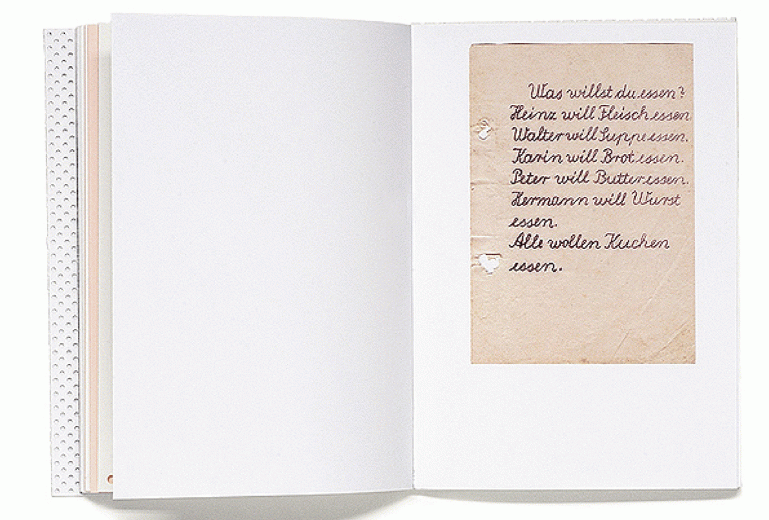 Was willst du essen?
Heinz will Fleisch essen
Walter will Suppe essen.
Karin will Brot essen.
Peter will Butter essen.
Hermann will Wurst
essen.
Alle wollen Kuchen
essen.